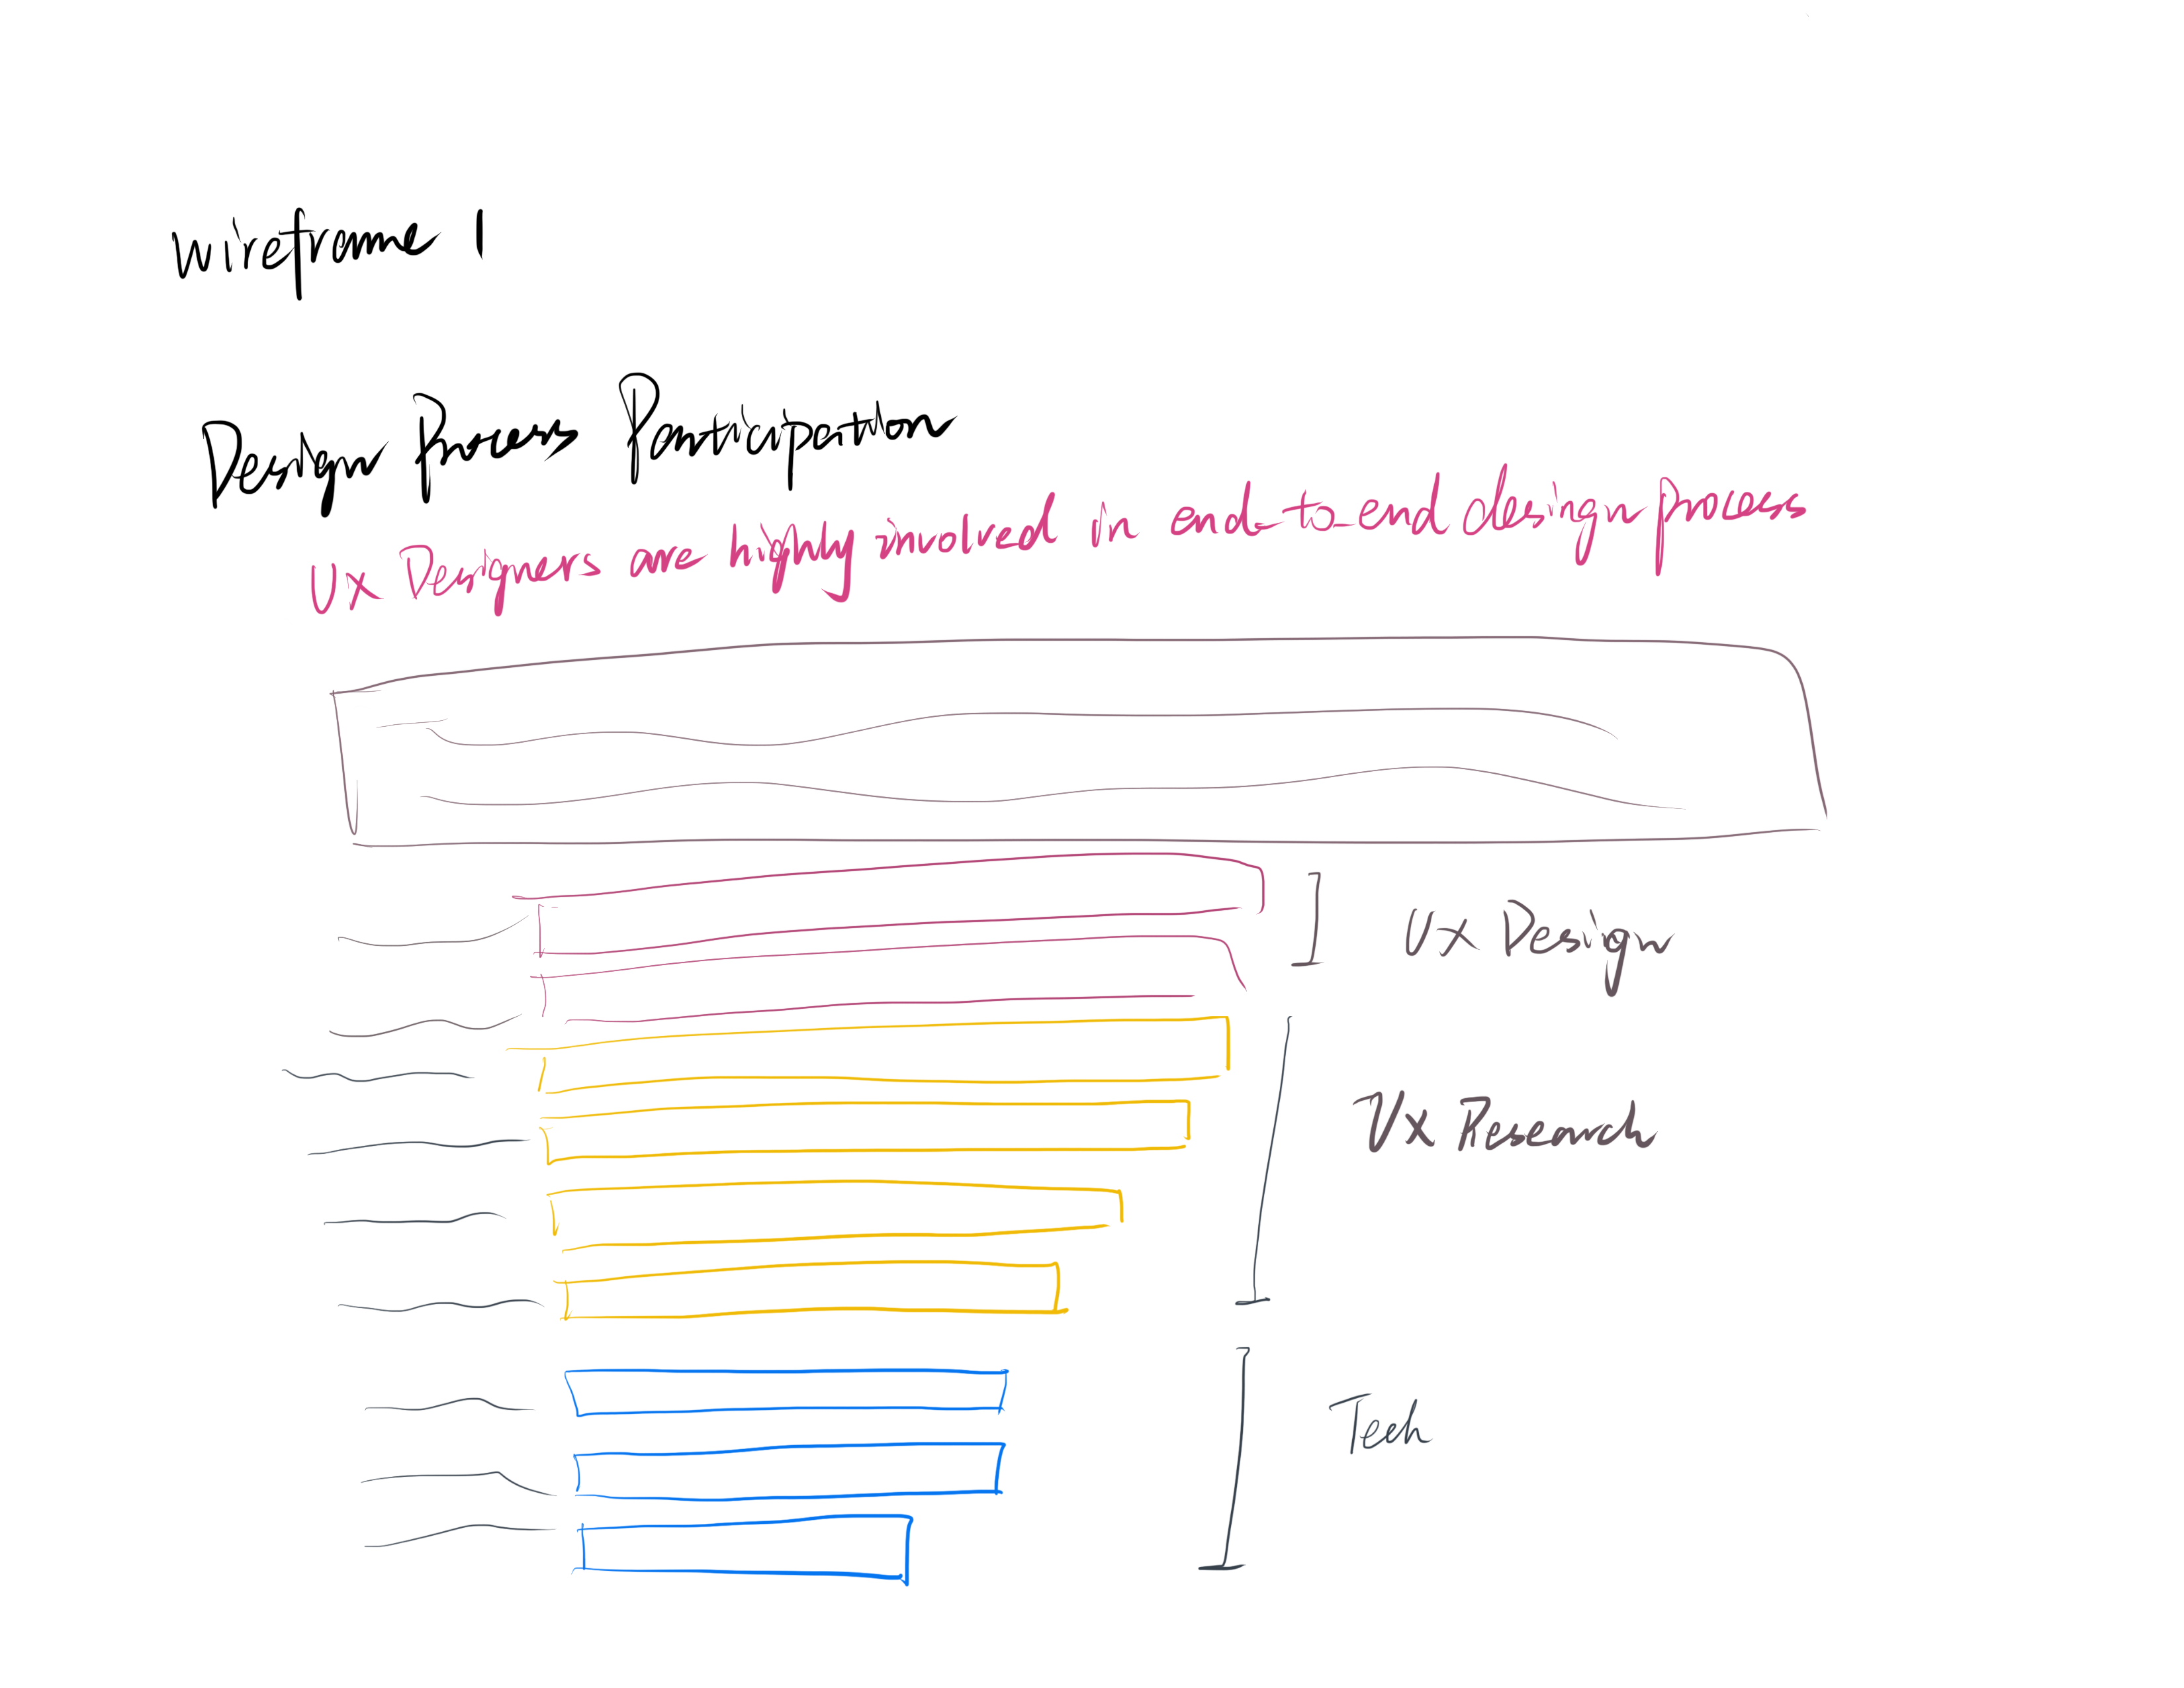 wireframe 1
Design Process Participation
UX Designers are highly involved in end-to-end design process
UX Design
UX Research
Tech